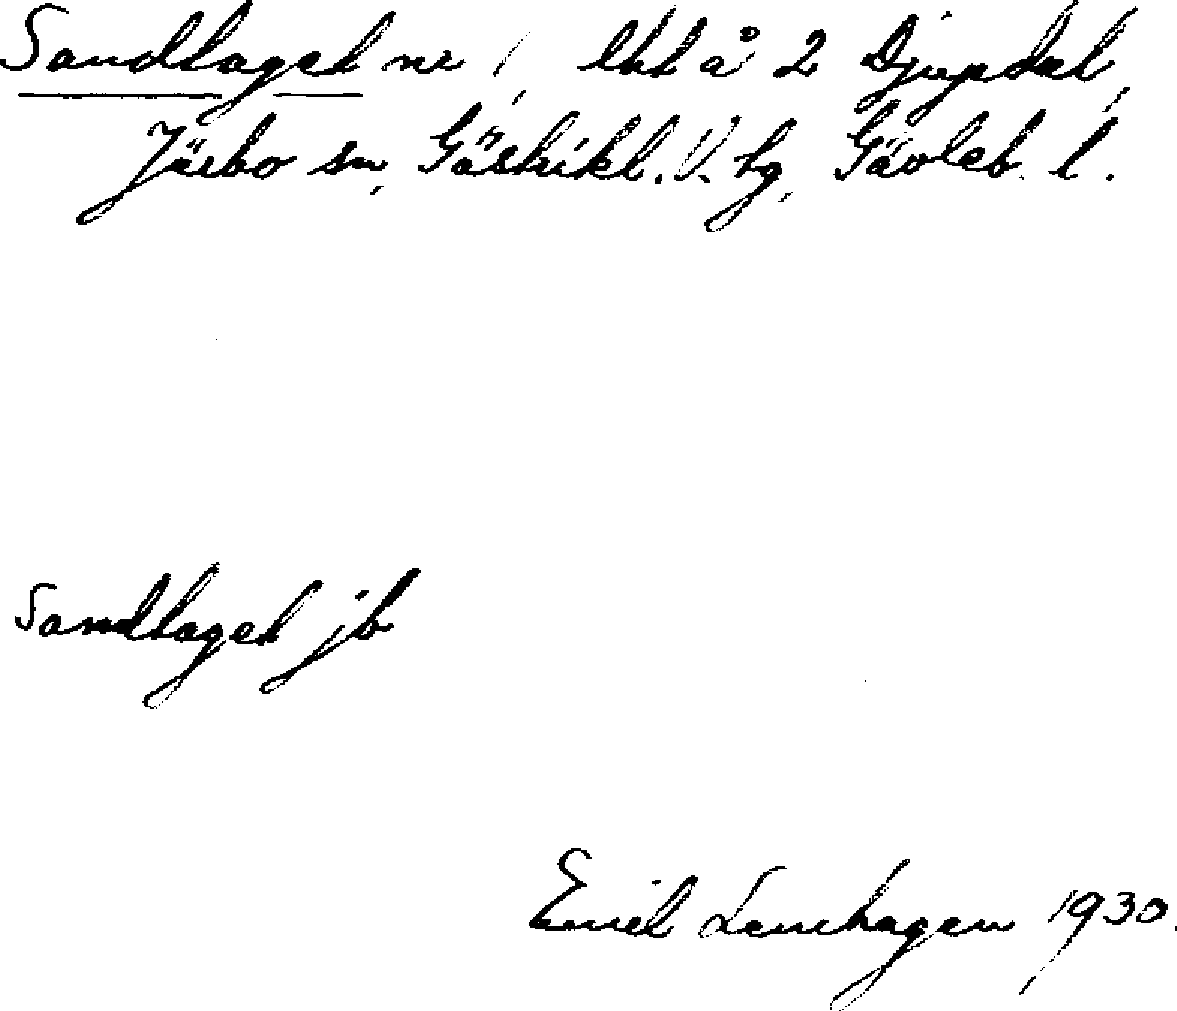 Sandtaget nr 1, lht å 2 Djupdal,
Järbo sn, Gästrikl. V. tg, Gävleb. l.
Sandtaget jb
Emil Lenhagen 1930.